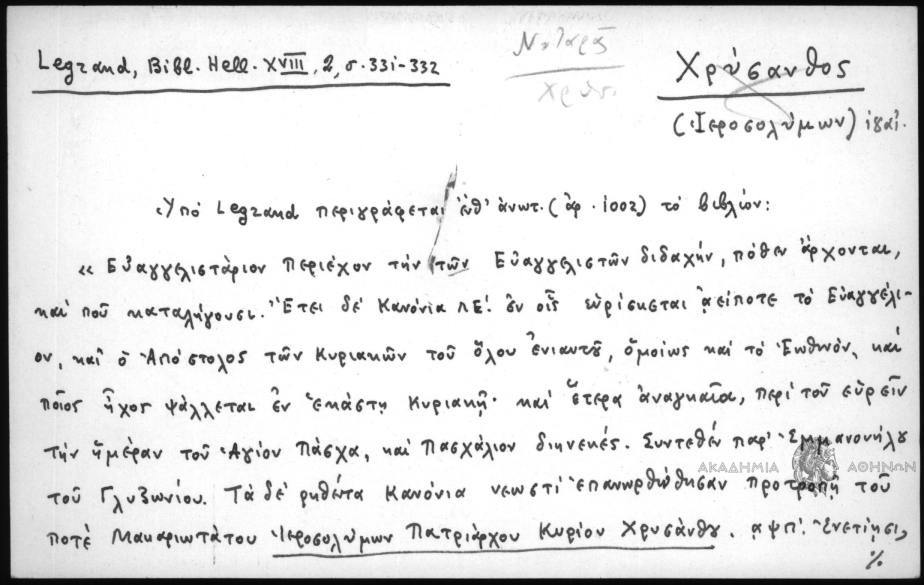 Νοταρᾶ
Χρύσ.
Legrand, Bibl. Hell. XVIII, 2, σ. 331-332
Χρύσανθος
(Ἱεροσολύμων)
Ὑπό Legrand περιγράφεται ἐνθ' ἀνωτ. (ἀρ. 1002) τό βιβλίον:
« Εὐαγγελιστάριον περιέχον τήν τῶν Εὐαγγελιστῶν διδαχήν, πόθεν ἄρχονται,
καί ποῦ καταλήγουσι. Ἔτει δέ Κανόνια ΛΕ'. ἐν οἷς εὑρίσκεται ἀείποτε τό Εὐαγγέλι-
ον, καί ὁ Ἀπόστολος τῶν Κυριακῶν τοῦ ὅλου ἐνιαυτοῦ, ὁμοίως καί τό Ἑωθινόν, καί
ποῖος ἦχος ψάλλεται ἐν ἑκάστῃ Κυριακῇ· καί ἕτερα ἀναγκαῖα, περί τοῦ εὑρεῖν
τήν ἡμέραν τοῦ Ἁγίου Πάσχα, καί Πασχάλιον διηνεκές. Συντεθέν παρ' Ἐμμανουήλου
τοῦ Γλυζωνίου. Τά δέ ρηθέντα Κανόνια νεωστί ἐπανωρθώθησαν προτροπῇ τοῦ
ποτέ Μακαριωτάτου Ἱεροσολύμων Πατριάρχου Κυρίου Χρυσάνθου. ͵αψπ'. Ἐνετίησι,
%
ΑΚΑΔΗΜΙΑ ΑΘΗΝΩΝ